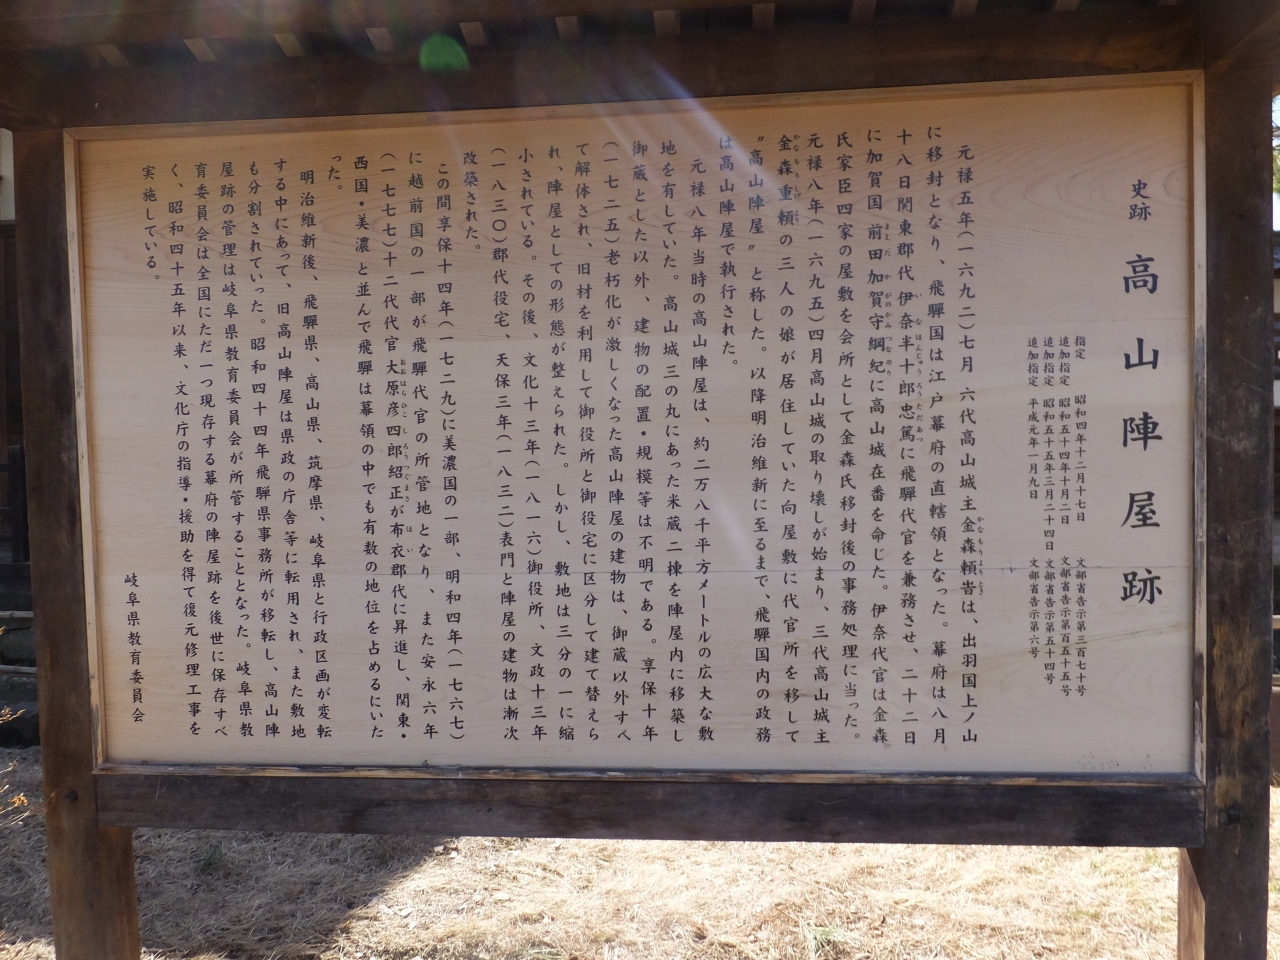 史跡 高山陣屋跡
指定 昭和四年十二月十七日 文部省告示第三百七十号
追加指定 昭和五十四年十月二日 文部省告示第百五十五号
追加指定 昭和五十五年三月二十四日 文部省告示第五十四号
追加指定 平成元年一月九日 文部省告示第六号
元禄五年(一六九二)七月 六代高山城主金森頼旹は、出羽国上ノ山
に移封となり、飛騨国は江戸幕府の直轄領となった。幕府は八月
十八日関東郡代 伊奈半十郎忠篤に飛騨代官を兼務させ、二十二日
に加賀国 前田加賀守綱紀に高山城在番を命じた。伊奈代官は金森
氏家臣四家の屋敷を会所として金森氏移封後の事務処理に当った。
元禄八年(一六九五)四月高山城の取り壊しが始まり、三代高山城主
金森重頼の三人の娘が居住していた向屋敷に代官所を移して
〝高山陣屋〟と称した。以降明治維新に至るまで、飛騨国内の政務
は高山陣屋で執行された。
元禄八年当時の高山陣屋は、約二万八千平方メートルの広大な敷
地を有していた。高山城三の丸にあった米蔵二棟を陣屋内に移築し
御蔵とした以外、建物の配置・規模等は不明である。享保十年
(一七二五)老朽化が激しくなった高山陣屋の建物は、御蔵以外すべ
て解体され、旧材を利用して御役所と御役宅に区分して建て替えら
れ、陣屋としての形態が整えられた。しかし、敷地は三分の一に縮
小されている。その後、文化十三年(一八一六)御役所、文政十三年
(一八三〇)郡代役宅、天保三年(一八三二)表門と陣屋の建物は漸次
改築された。
この間享保十四年(一七二九)に美濃国の一部、明和四年(一七六七)
に越前国の一部が飛騨代官の所管地となり、また安永六年
(一七七七)十二代代官 大原彦四郎紹正が布衣郡代に昇進し、関東・
西国・美濃と並んで飛騨は幕領の中でも有数の地位を占めるにいた
った。
明治維新後、飛騨県、高山県、筑摩県、岐阜県と行政区画が変転
する中にあって、旧高山陣屋は県政の庁舎等に転用され、また敷地
も分割されていった。昭和四十四年飛騨県事務所が移転し、高山陣
屋跡の管理は岐阜県教育委員会が所管することとなった。岐阜県教
育委員会は全国にただ一つ現存する幕府の陣屋跡を後世に保存すべ
く、昭和四十五年以来、文化庁の指導・援助を得て復元修理工事を
実施している。
岐阜県教育委員会